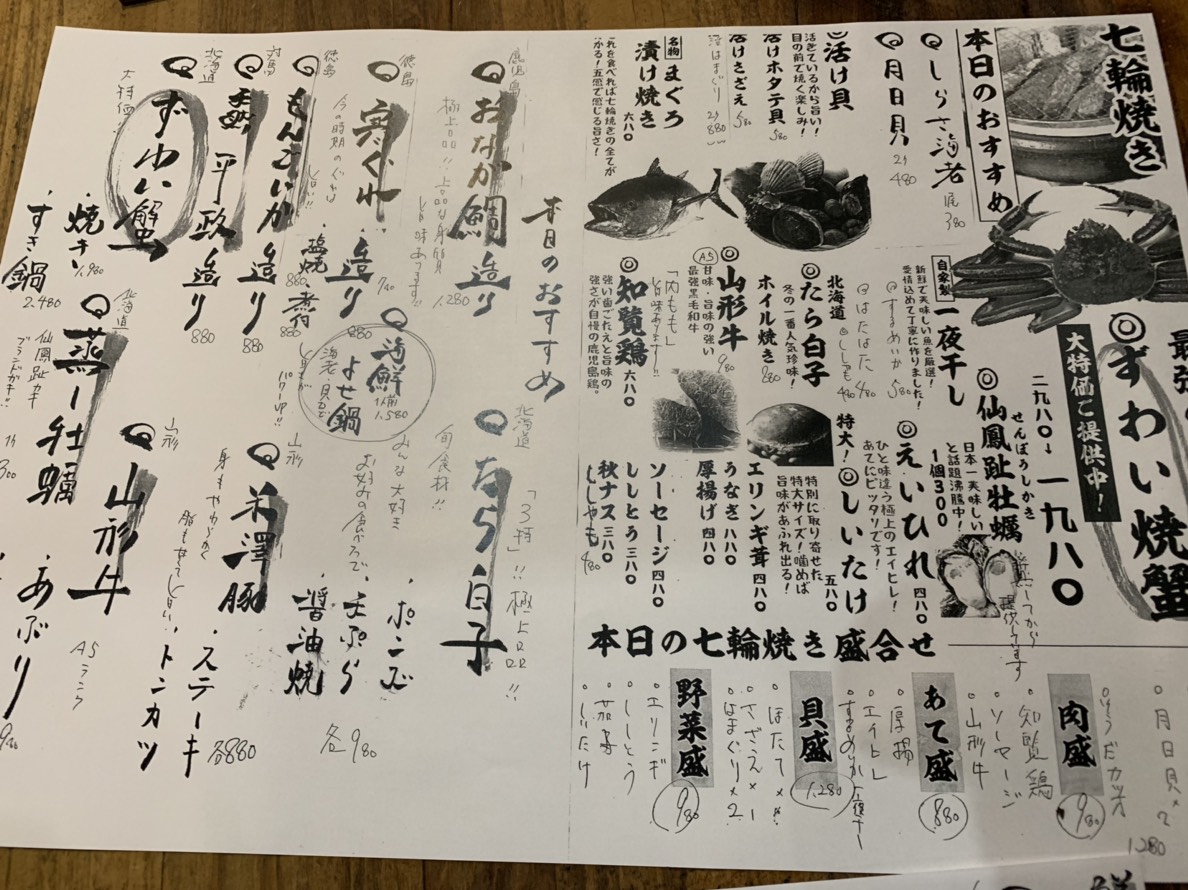 七輪焼き
本日のおすすめ
◎しらさ海老 尾380
◎月日貝 2ケ 480
◎活け貝
活きているから旨い!
目の前で焼く楽しみ!
活けホタテ貝 580
活けさざえ 580
活はまぐり 2ケ 880
名物 まぐろ
漬け焼き 六八〇
これを食べれば七輪焼きの全てが
かる!五感で感じる旨さ!
◎ずわい焼蟹
大特価ご提供中!
二九八〇→一九八〇
せんぽうしかき
◎仙鳳趾牡蠣
日本一美味しい
と話題沸騰中!
1個300
自家製 一夜干し
新鮮で美味しい魚を厳選!
愛情込めて丁寧に作りました!
◎するめいか 580
◎はたはた 480
◎ししゃも 480
北海道
◎たら白子
冬の一番人気珍味!
ホイル焼き 980
◎山形牛
(A5)
甘味・旨味の強い
最強黒毛和牛
980
「内もも」
旨味あります!!
◎知覧鶏 六八〇
強い歯ごたえと旨味の
強さが自慢の鹿児島鶏。
◎えいひれ 四八〇
ひと味違う極上のエイヒレ!
あてにピッタリです!
特大!◎しいたけ 五八〇
特別に取り寄せた
特大サイズ!噛めば
旨味があふれ出る!
エリンギ茸 四八〇
うなぎ 八八〇
厚揚げ 四八〇
ソーセージ 四八〇
ししとう 三八〇
秋ナス 三八〇
ししゃも 480
本日の七輪焼き盛合せ
。月日貝×2
1,280
肉盛 980
。知覧鶏
。ソーセージ
。山形牛
あて盛 880
。厚揚
。エイヒレ
。するめいか一夜干
貝盛 1,280
。ほたて×
。さざえ×1
。はまぐり×2
野菜盛 980
。エリンギ
。ししとう
。茄子
。しいたけ
本日のおすすめ
鹿児島
おなが鯛造り
極上品!!上品な身質
旨味あります!!
1,280
徳島
寒ぐれ造り
今の時期のぐれは
旨い!!
780
徳島
・塩焼 880
・煮付 880
対馬
もんごいか造り 880
北海道
平政造り 880
大特価
ずわい蟹
・焼き 1,980
・すき鍋 2,480
海鮮よせ鍋
1人前 1,580
海老、貝など
北海道
たら白子
「3特」!!極上品!!
旬食材!!
みんな大好き
お好みの食べ方で
・ポンズ
・天ぷら
・醤油焼
各980
山形
米澤豚
身もやわらかく
脂も甘くて旨い
・ステーキ
・トンカツ
各880
山形
山形牛
A5ランク
・あぶり
北海道
蒸し牡蠣
仙鳳趾カキ
ブランドガキ!!